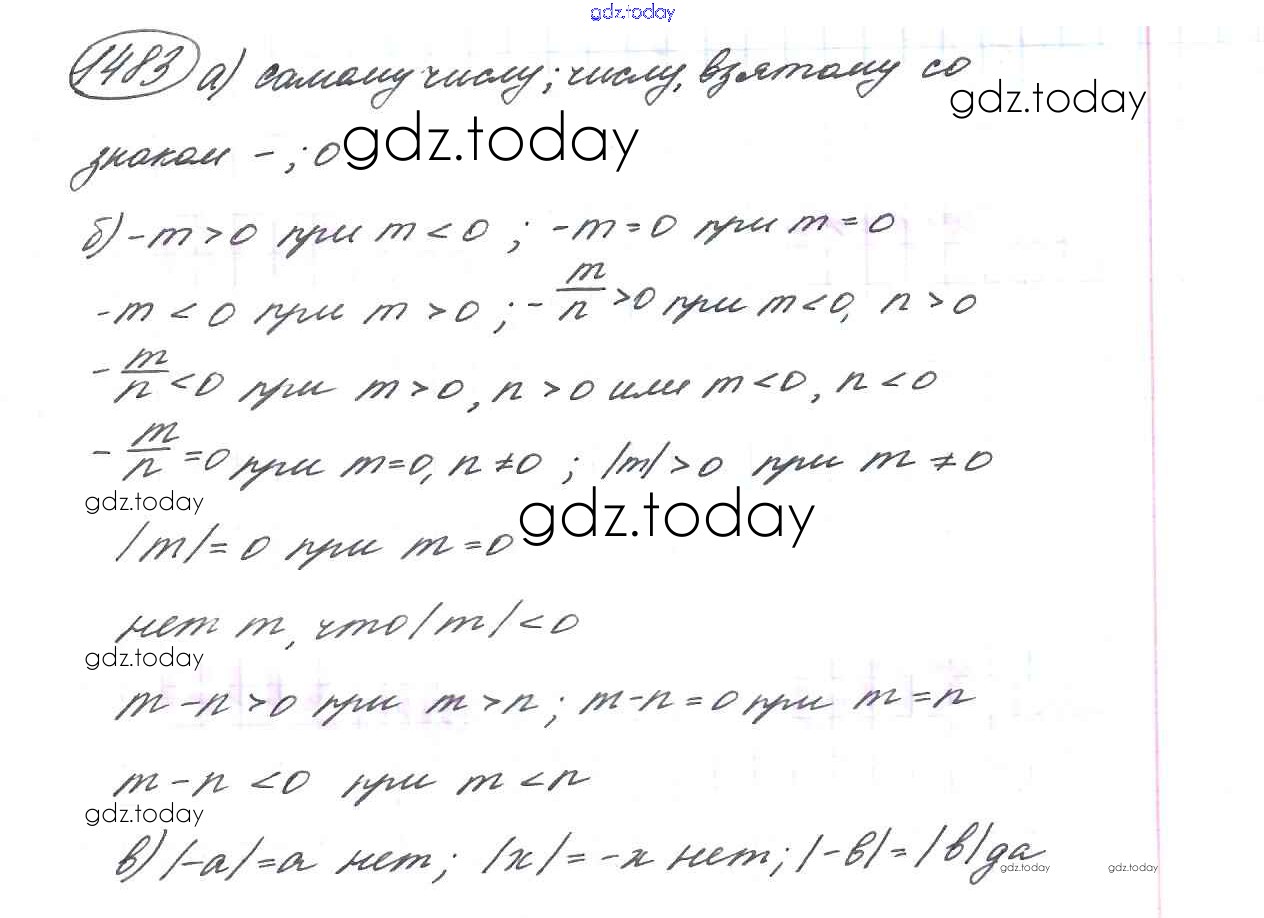 gdz.today
1483 а) самому числу; числу, взятому со
gdz.today
знаком - ; 0
gdz.today
б) -m > 0 при m < 0 ; -m = 0 при m = 0
-m < 0 при m > 0 ; -m/n > 0 при m < 0, n > 0
-m/n < 0 при m > 0, n > 0 или m < 0, n < 0
-m/n = 0 при m = 0, n ≠ 0 ; |m| > 0 при m ≠ 0
gdz.today
gdz.today
|m| = 0 при m = 0
нет m, что |m| < 0
gdz.today
m - n > 0 при m > n ; m - n = 0 при m = n
m - n < 0 при m < n
gdz.today
в) |-a| = a нет; |x| = -x нет; |-в| = |в| да
gdz.today
gdz.today